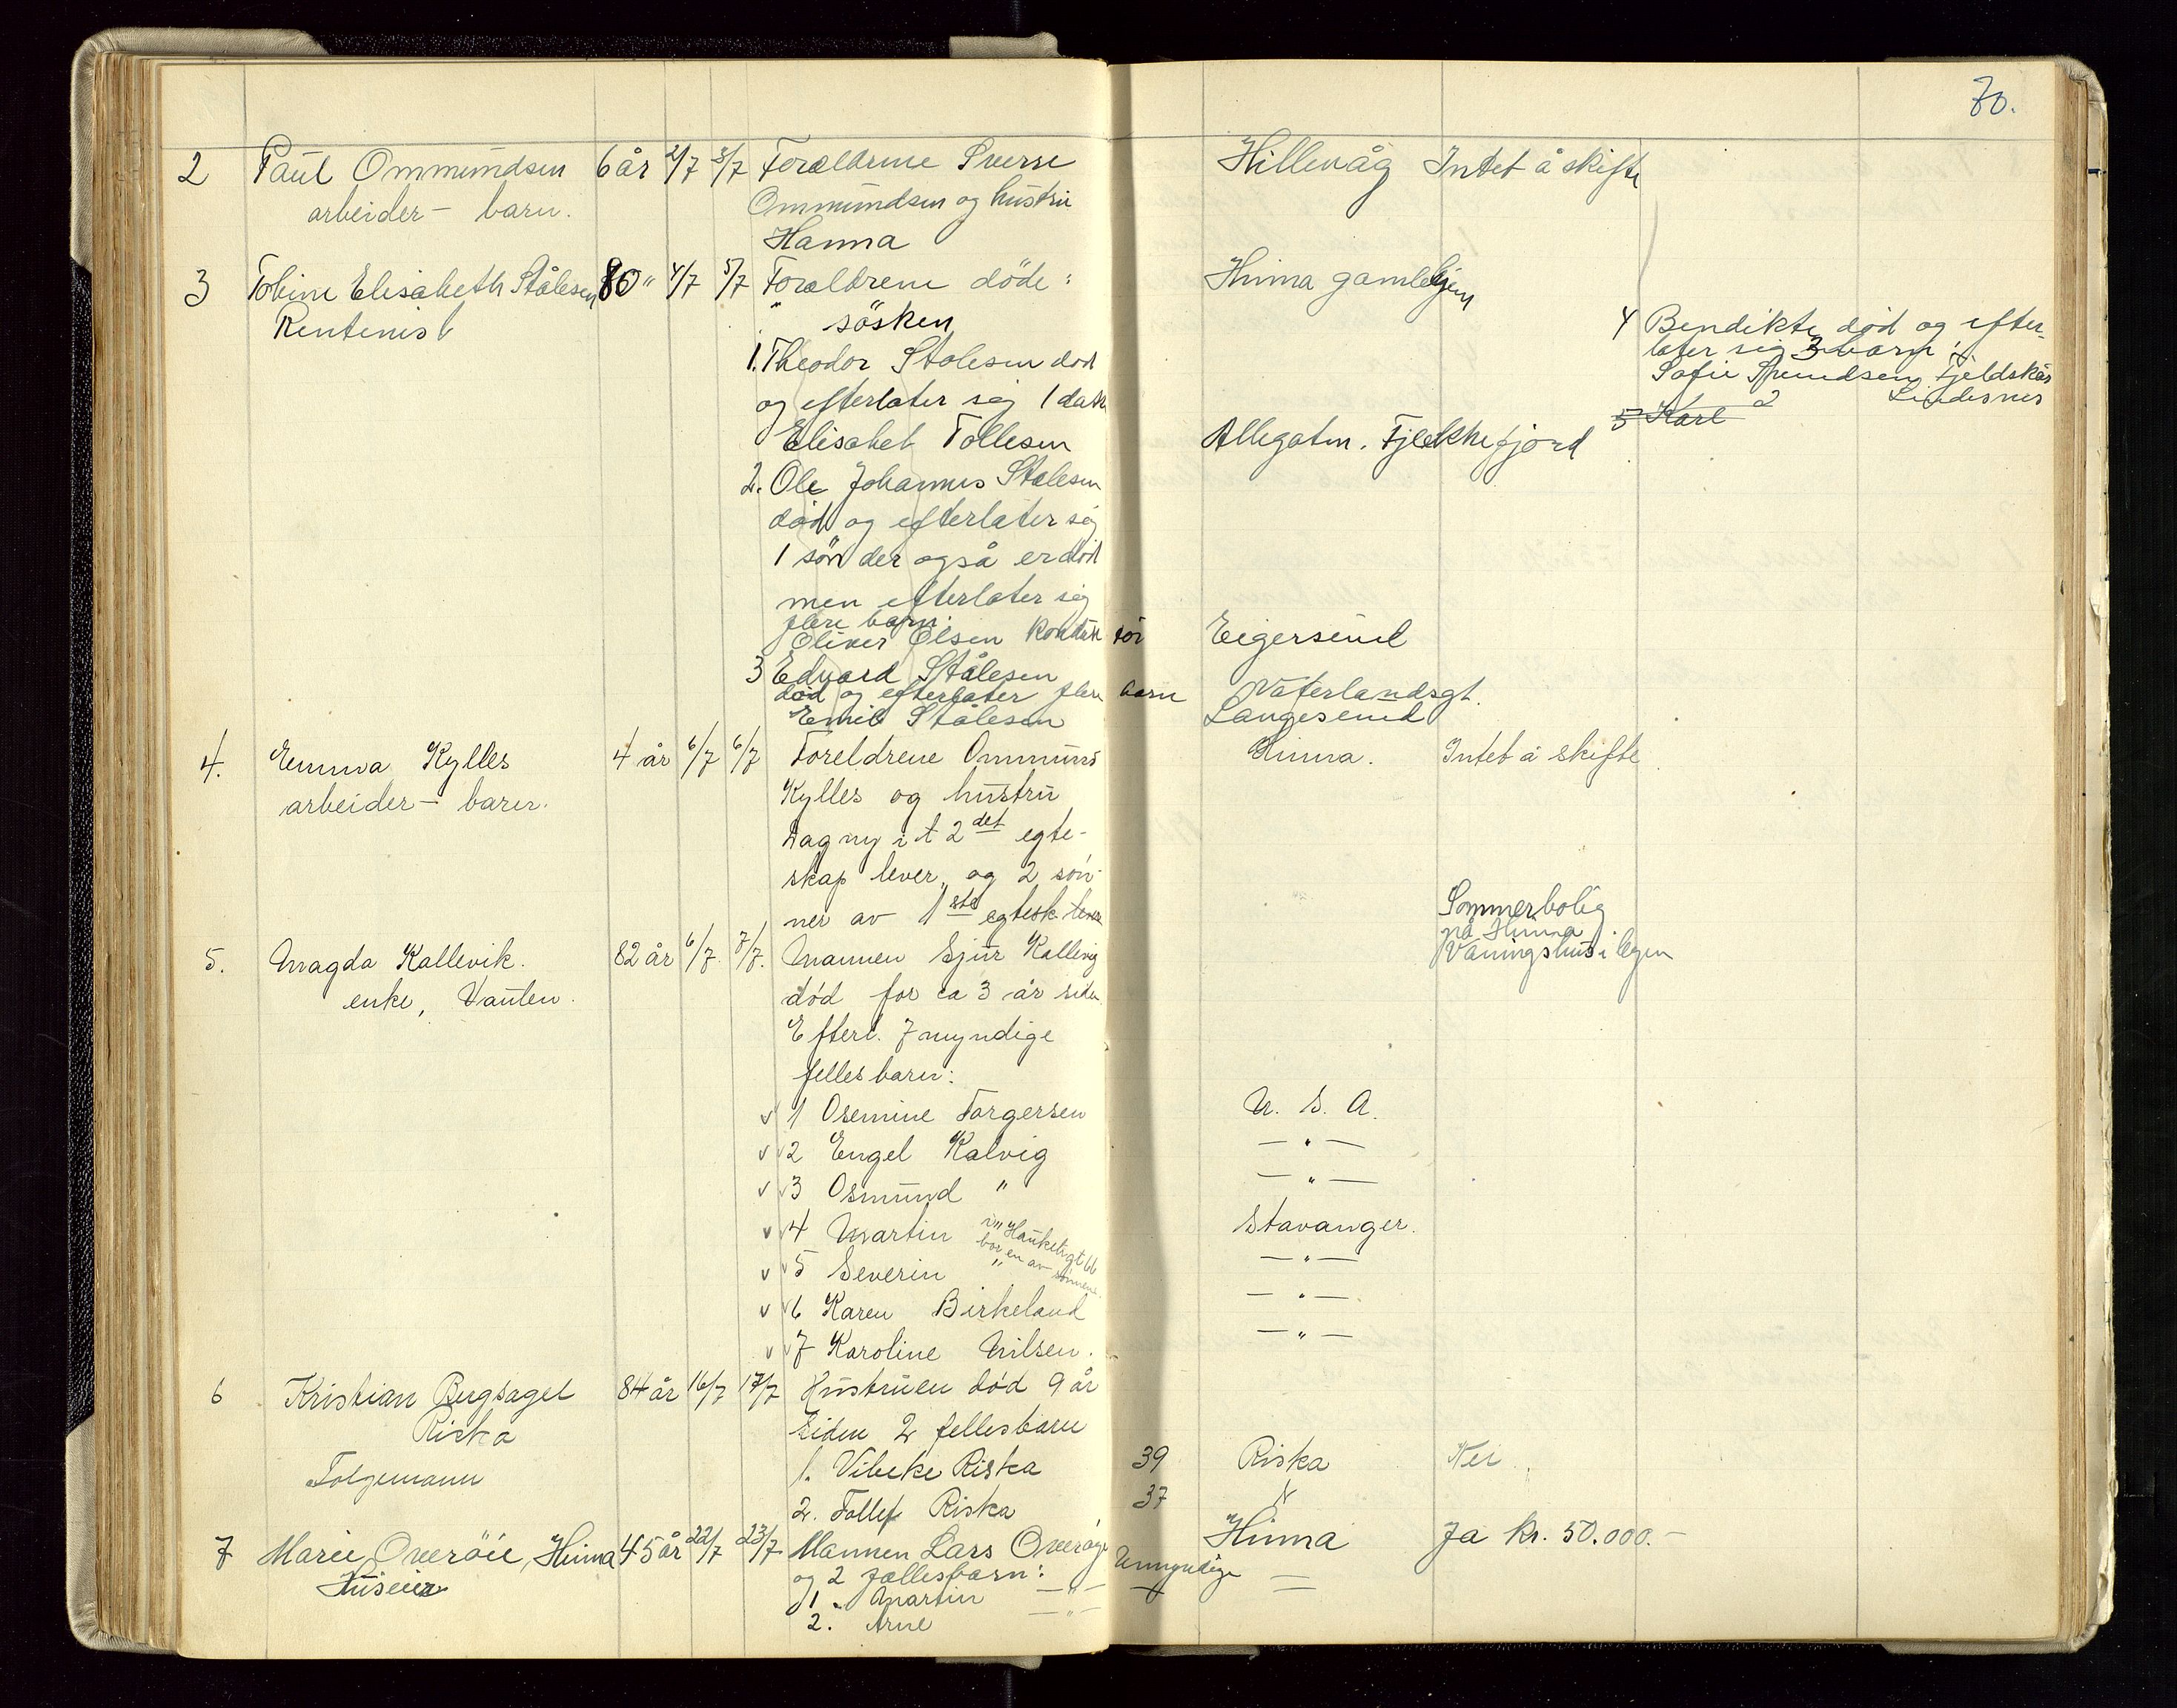 70.
2 Paul Ommundsen 6 år 2/7 3/7 Forældrene Sverre Hillevåg Intet å skifte
arbeider- barn. Ommundsen og hustru
Hanna
3 Tobine Elisabeth Stålesen 80 " 4/7 5/7 Forældrene döde: Hinna gamlehjem
Rentenist " søsken
1. Theodor Stålesen død
og efterlater sig 1 datt
Elisabet Tollesen Allegaten. Fjekkefjord
2. Ole Johannes Stålesen
död og efterlater sig
1 sön der også er död
men efterlater sig
flere barn.
Oliver Olsen Konduktør Eigersund
3 Edvard Stålesen
død og efterlater flere barn Vaterlandsgt.
Emil Stålesen Langesund
4 Bendikte død og efter-
later sig 3 barn:
Sofie Svendsen, Fjeldskår
Lindesnes
5 Karl
4. Emma Kylles 4 år 6/7 6/7 Foreldrene Ommund Hinna. Intet å skifte
arbeider- barn. Kylles og hustru
Dagny i t 2det egte-
skap lever, og 2 søn-
ner av 1ste egtesk. lever
5. Magda Kallevik. 82 år 6/7. 7/7. Mannen Sjur Kallevig
enke, Vaulen. død for ca 3 år siden
Sommerbolig
på Hinna
Våningshus i byen
Efterl. 7 myndige
fellesbarn:
v 1 Osemine Torgersen U. S. A.
v v 2 Engel Kalvig — " —
v v 3 Osmund " — " —
v v 4 Martin " Stavanger.
i Haukeligt 66
bor en av sønnene
v v 5 Severin " — " —
v v 6 Karen Birkeland — " —
v v 7 Karoline Nilsen. — " —
6 Kristian Bergsagel 84 år 16/7 17/7 Hustruen død 9 år
Riska siden 2 fellesbarn
Folgemann 1. Vibeke Riska 39 Riska Nei
2. Tollef Riska 37 "
7 Marie Overöie, Hinna 45 år 22/7 23/7 Mannen Lars Overøye Hinna Ja kr. 50.000.-
Huseier og 2 fællesbarn: Umyndige
1. Martin — " —
2. Arne — " —